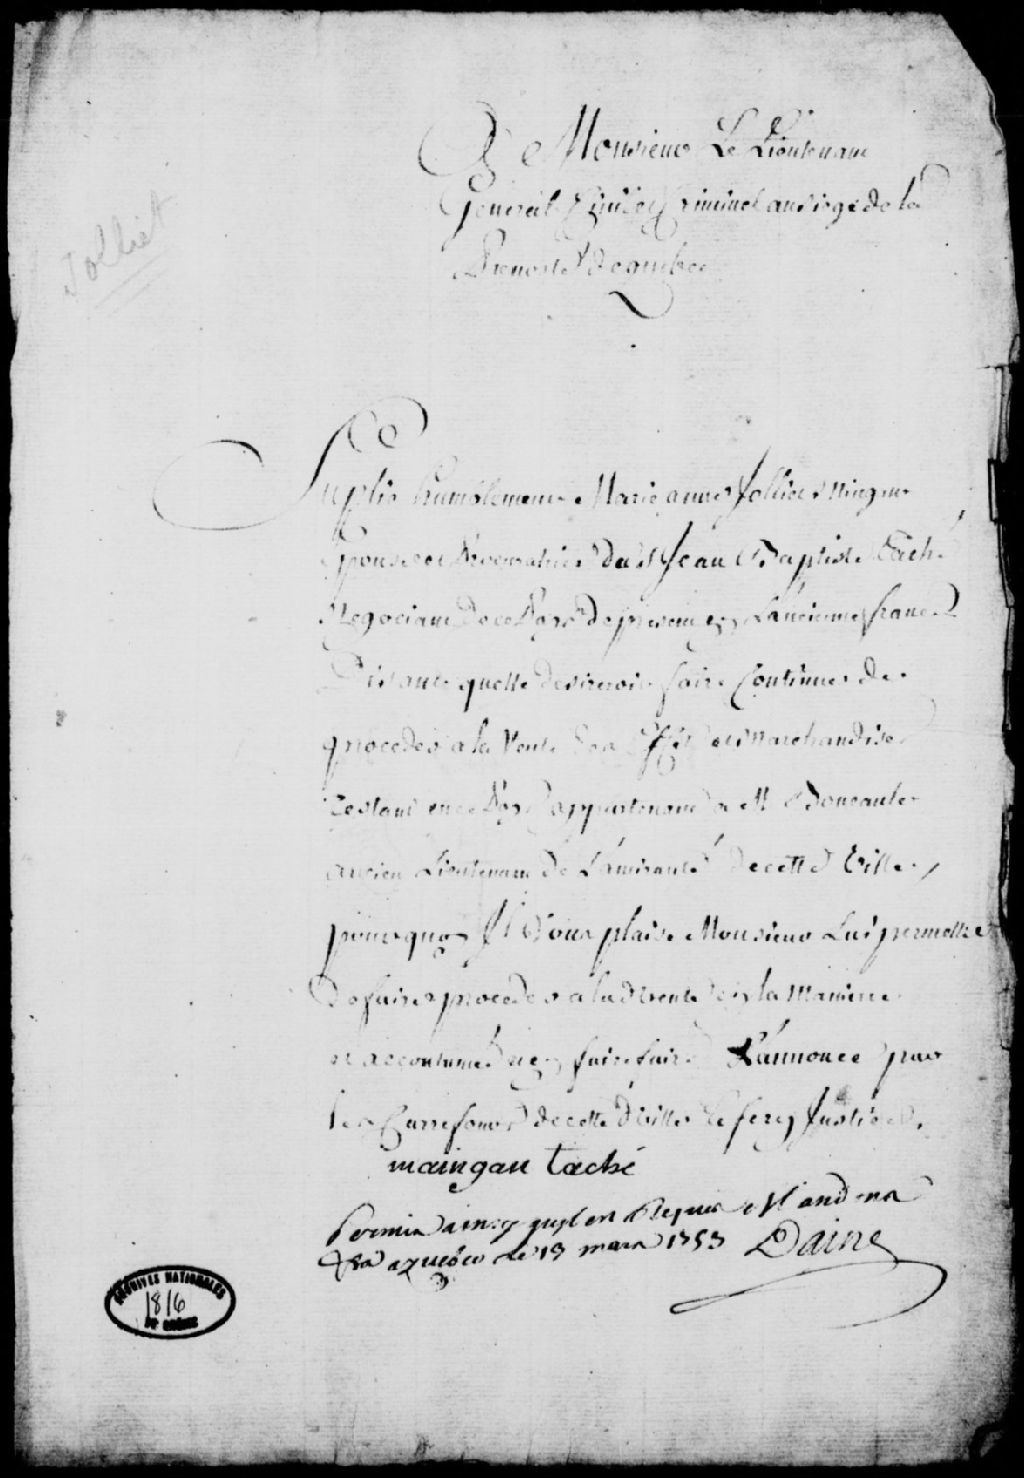 A Monsieur Le Lieutenant
General Civil et Criminel au siege de la
Prevosté de quebec
Jolliet
Suplie humblement Marie anne Jolliet Mingan
Epouse et Procuratrice du Sr Jean Baptiste Taché
Negociant de ce Pays de present en L'ancienne france
Disant quelle desireroit faire Continuer de
proceder a la Vente des Effets et Marchandises
restant en ce Pays appartenant a M Boucault
ancien Lieutenant de L'amirauté de cette Ville,
pourquoy Il Vous plaise Monsieur Lui permettre
de faire proceder a la d vente en la Maniere
accoutumée et faire faire L'annonce par
les Carrefours de cette Ville Et ferez Justice.
maingan taché
Permis ainsy quil est Requis Mandons
&ca a quebec Le 13 mars 1753 Daine
ARCHIVES NATIONALES
1816
DU QUEBEC